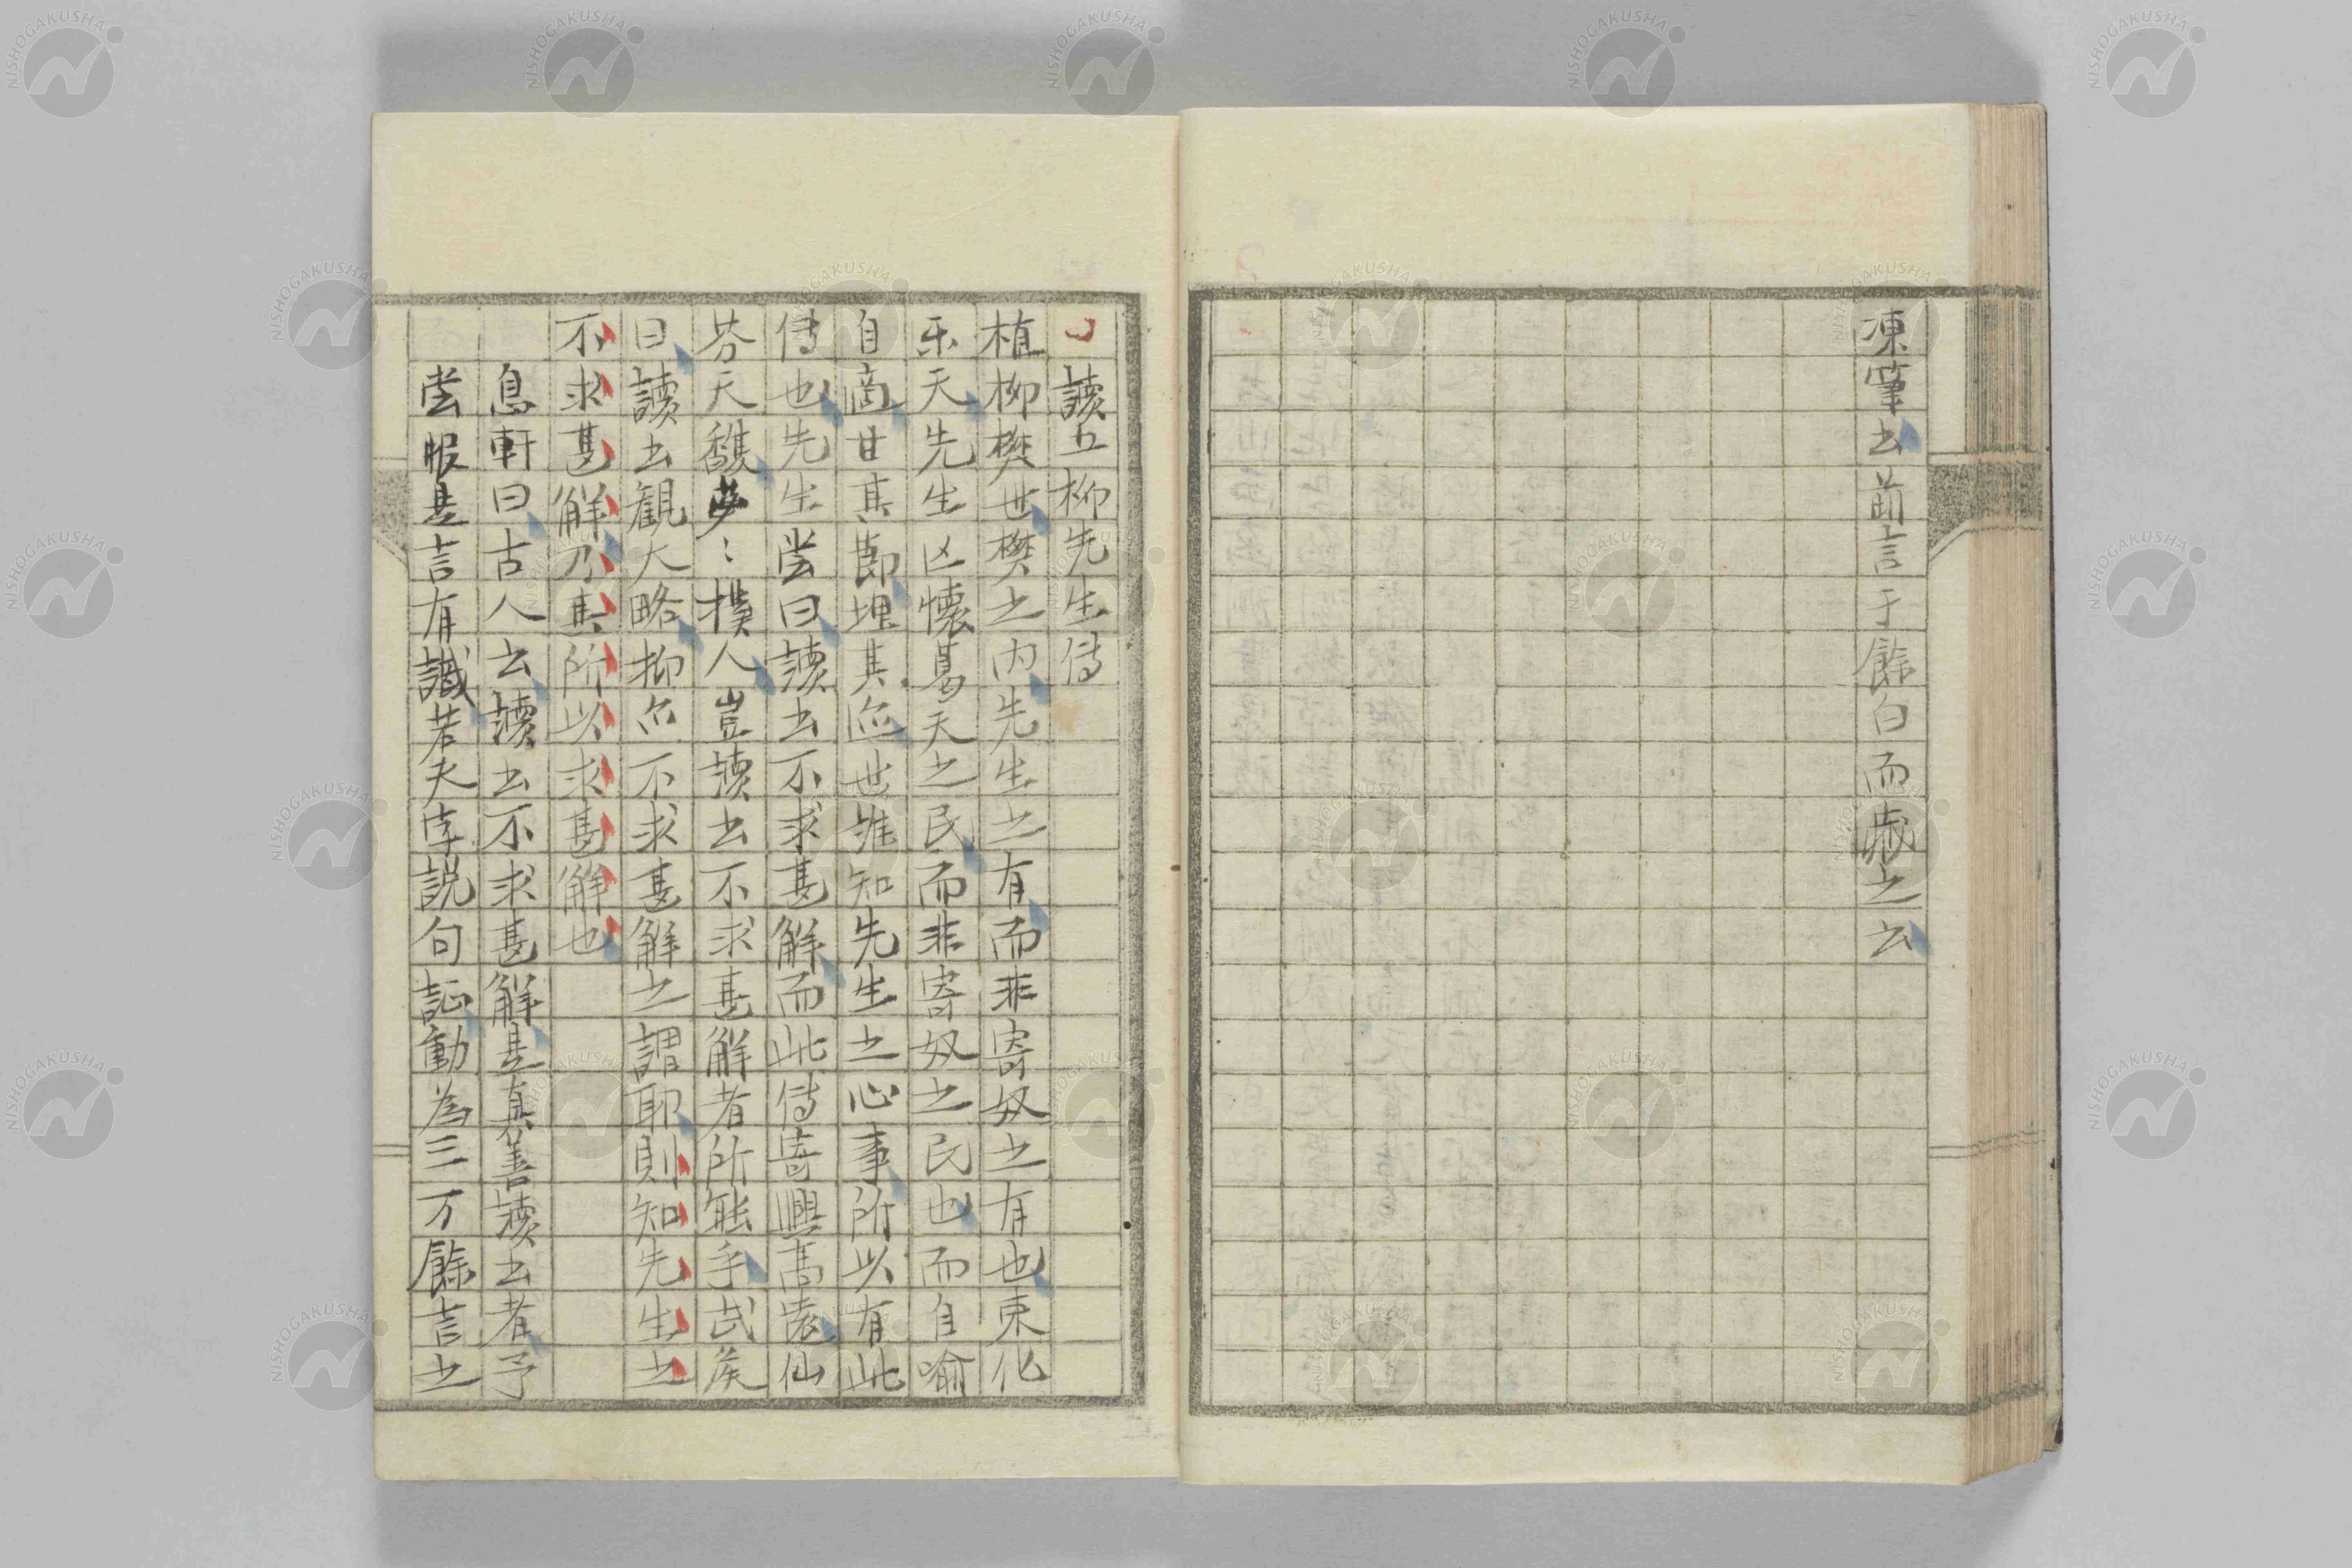 凍筆書前言于餘白而歳之云
讀五柳先生傳
植柳樊世樊之内先生之有而非寄奴之有也束化
乐天先生区懷葛天之民而非寄奴之民也而自喻
自適甘其節埋其迹世誰知先生之心事所以有此
傳也先生尝曰讀书不求甚解而此傳寄興高遠仙
芬天馥夢〻撲人豈讀书不求甚解者所能乎武矦
曰讀书観大略抑亦不求甚解之謂耶則知先生之
不求甚解乃其所以求甚解也
息軒曰古人云讀书不求甚解是真善讀书者予
尝服是言有識若夫字説句証動為三万餘言之
NISHOGAKUSHA